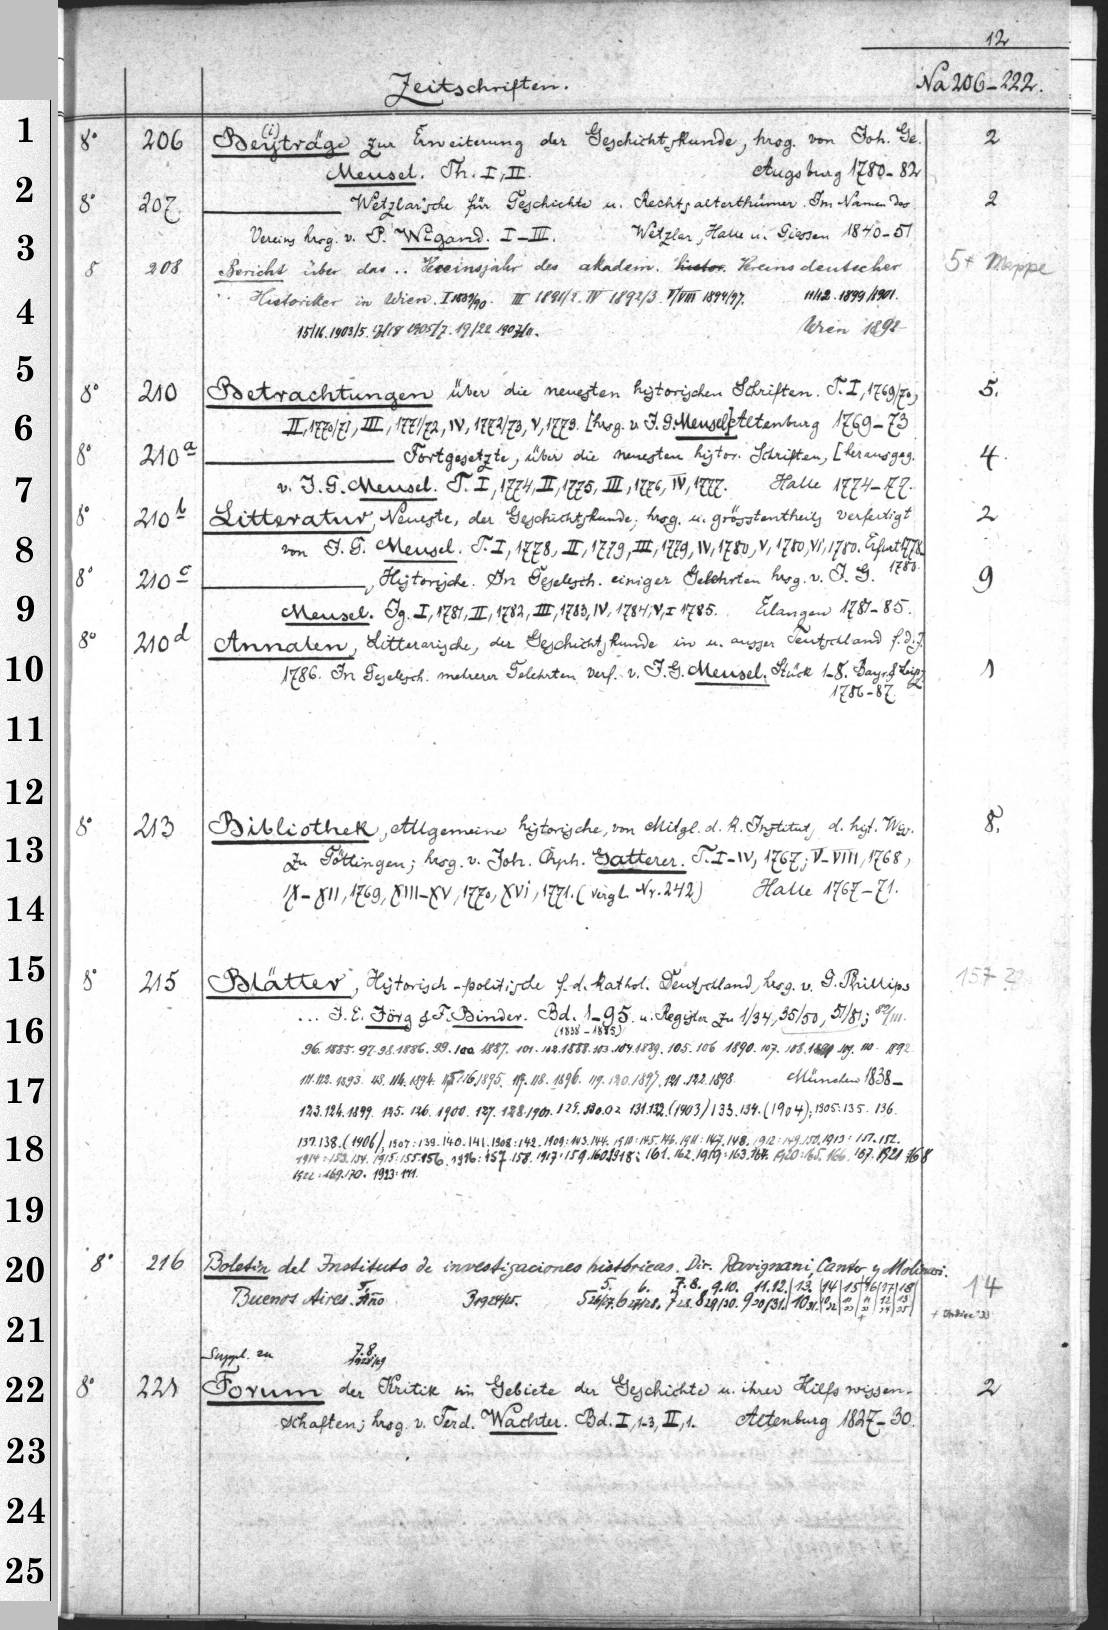 12
Zeitschriften. Na 206-222.
1 8° 206 Beyträge (i) zur Erweiterung der Geschichtskunde, hrsg. von Joh. Ge. 2
Meusel. Th. I, II. Augsburg 1780-82
2 8° 207 ——— Wetzlar'sche für Geschichte u. Rechtsalterthümer. Im Namen des 2
3 Vereins hrsg. v. P. Wigand. I-III. Wetzlar, Halle u. Giessen 1840-51
8 208 Bericht über das .. Vereinsjahr des akadem. histor. Vereins deutscher 5+ Mappe
4 Historiker in Wien. I 1889/90. III 1891/2. IV 1892/3. V/VIII 1894/97. 11/12. 1899/1901.
15/16. 1903/5. 17/18 1905/7. 19/22 1907/11. Wien 1892-
5
8° 210 Betrachtungen über die neuesten historischen Schriften. T. I, 1769/70, 5.
6 II, 1770/71, III, 1771/72, IV, 1772/73, V, 1773. [hrsg. v. J. G. Meusel] Altenburg 1769-73
8° 210a ——— Fortgesetzte, über die neuesten histor. Schriften, [herausgeg. 4.
7 v. J. G. Meusel. T. I, 1774, II, 1775, III, 1776, IV, 1777. Halle 1774-77.
8° 210b Litteratur, Neueste, der Geschichtskunde; hrsg. u. grösstentheils verfertigt 2
8 von J. G. Meusel. T. I, 1778, II, 1779, III, 1779, IV, 1780, V, 1780, VI, 1780. Erfurt 1778
1780.
8° 210c ———, Historische. In Gesellsch. einiger Gelehrten hrsg. v. J. G. 9
9 Meusel. Jg. I, 1781, II, 1782, III, 1783, IV, 1784, V, I 1785. Erlangen 1781-85.
8° 210d Annalen, Litterarische, der Geschichtskunde in u. ausser Teutschland f. d. J.
10 1786. In Gesellsch. mehrerer Gelehrten verf. v. J. G. Meusel. Stück 1-8. Bayr. & Leipz 1
1786-87.
11
12
8° 213 Bibliothek, Allgemeine historische, von Mitgl. d. k. Instituts d. hist. Wis. 8.
13 zu Göttingen; hrsg. v. Joh. Chph. Gatterer. T. I-IV, 1767; V-VIII, 1768,
14 IX-XII, 1769, XIII-XV, 1770, XVI, 1771. (vergl. Nr. 242) Halle 1767-71.
15 8° 215 Blätter, Historisch-politische f. d. kathol. Deutschland, hrsg. v. G. Phillips 157
16 ... J. E. Jörg & F. Binder. Bd. 1-95. u. Register zu 1/34, 35/50, 51/81;
(1838-1885)
96. 1885. 97. 98. 1886. 99. 100 1887. 101. 102. 1888. 103. 104. 1889. 105. 106 1890. 107. 108. 1891 109. 110. 1892
17 111. 112. 1893. 113. 114. 1894. 115. 116 1895. 117. 118. 1896. 119. 120. 1897. 121. 122. 1898. München 1838-
123. 124. 1899. 125. 126. 1900. 127. 128. 1901. 129. 130. 02 131. 132. (1903) 133. 134. (1904); 1905: 135. 136.
18 137. 138. (1906), 1907: 139. 140. 141. 1908: 142. 1909: 143. 144. 1910: 145. 146. 1911: 147. 148. 1912: 149. 150. 1913: 151. 152.
1914: 153. 154. 1915: 155. 156. 1916: 157. 158. 1917: 159. 160. 1918: 161. 162. 1919: 163. 164. 1920: 165. 166. 167. 1921 168
1922: 169. 170. 1923: 171.
19
20 8° 216 Boletin del Instituto de investigaciones históricas. Dir. Ravignani, Cantor y Molinari.
5. 6. 7. 8. 9. 10. 11. 12. 13. 14 15 16 17 18 14
Buenos Aires. Año 3 1924/25. 5 26/27. 6 27/28. 7 28. 8 29/30. 9 30/31. 10 31.
21
Suppl. zu 7.8
22 8° 221 Forum der Kritik im Gebiete der Geschichte u. ihrer Hilfswissen- 2
schaften; hrsg. v. Ferd. Wachter. Bd. I, 1-3, II, 1. Altenburg 1827-30.
23
24
25